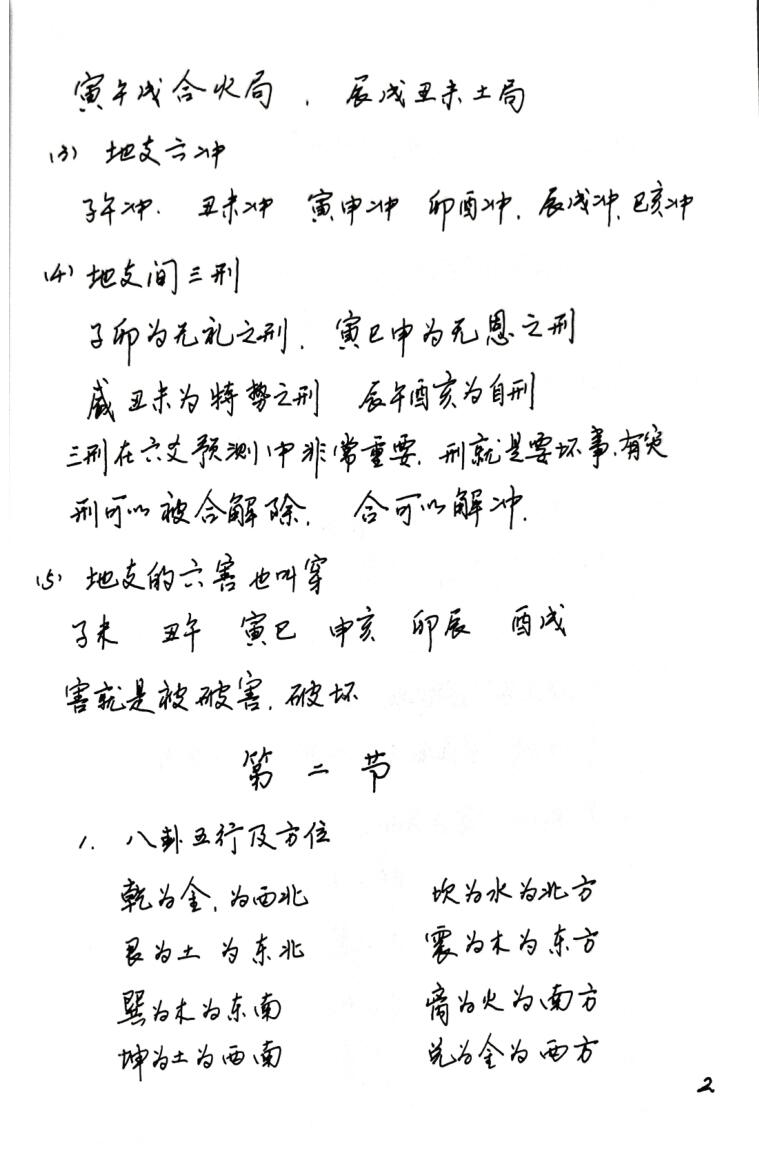 寅午戌合火局，辰戌丑未土局
(3) 地支六冲
子午冲. 丑未冲 寅申冲 卯酉冲, 辰戌冲, 巳亥冲
(4) 地支间三刑
子卯为无礼之刑, 寅巳申为无恩之刑
丑未为特势之刑 辰午酉亥为自刑
三刑在六爻预测中非常重要, 刑就是要坏事, 有灾
刑可以被合解除, 合可以解冲.
(5) 地支的六害也叫穿
子未 丑午 寅巳 申亥 卯辰 酉戌
害就是被破害, 破坏
第二节
1. 八卦五行及方位
乾为金, 为西北 坎为水为北方
艮为土 为东北 震为木为东方
巽为木为东南 离为火为南方
坤为土为西南 兑为金为西方
2